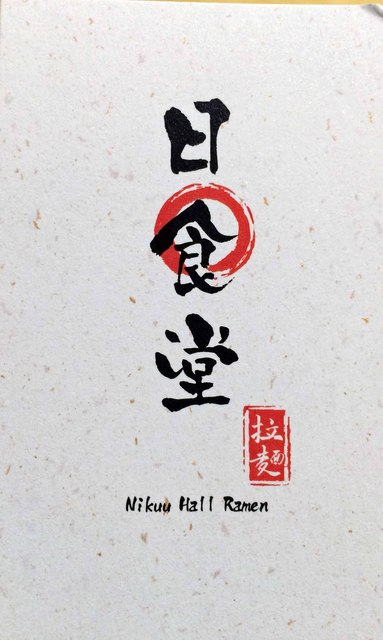 日食堂
拉麵
Nikuu Hall Ramen